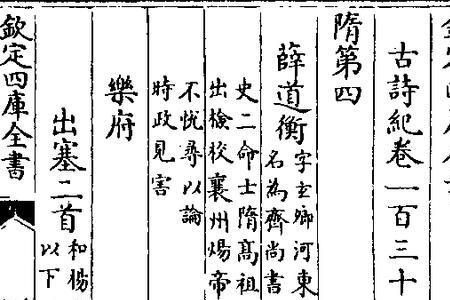 古詩紀卷一百三十
隋第四
薛道衡字玄卿河東
名為齊尚書
史二命士隋髙祖
出檢校襄州煬帝
不悦尋以論
時政見害
樂府
出塞二首和楊
以下
欽定四庫全書